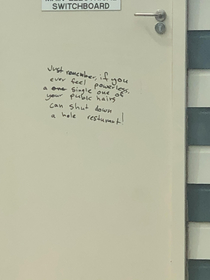 SWITCHBOARD
Just remember, if you
ever feel powerless,
a single one of
your pubic hairs
can shut down
a hole restaurant!